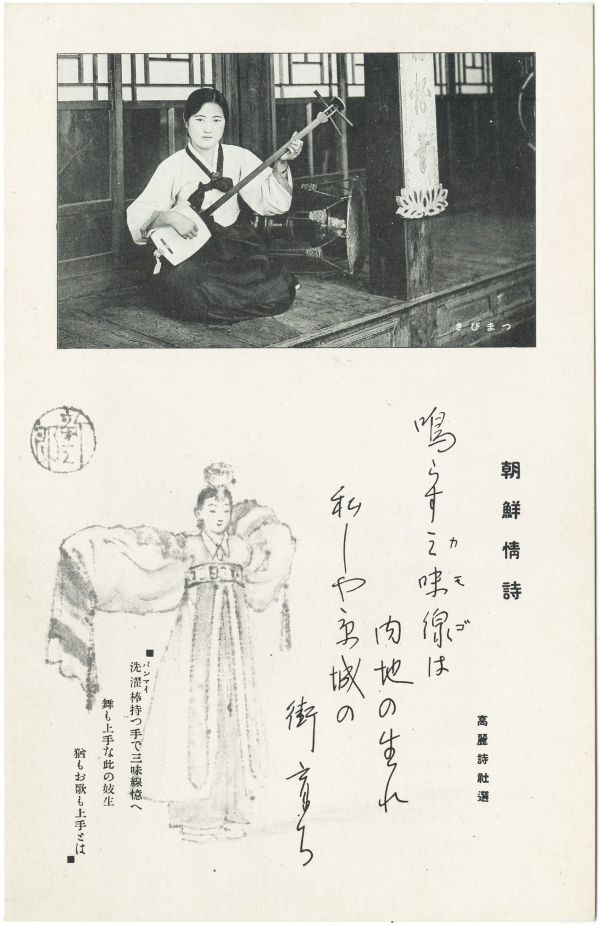 つまびき
朝鮮情詩
高麗詩社選
鳴らす三味線は
カモゴ
内地の生れ
私しや京城の
街育ち
■洗濯棒持つ手で三味線憶へ
パンマイ
舞も上手な此の妓生
猶もお歌も上手とは■